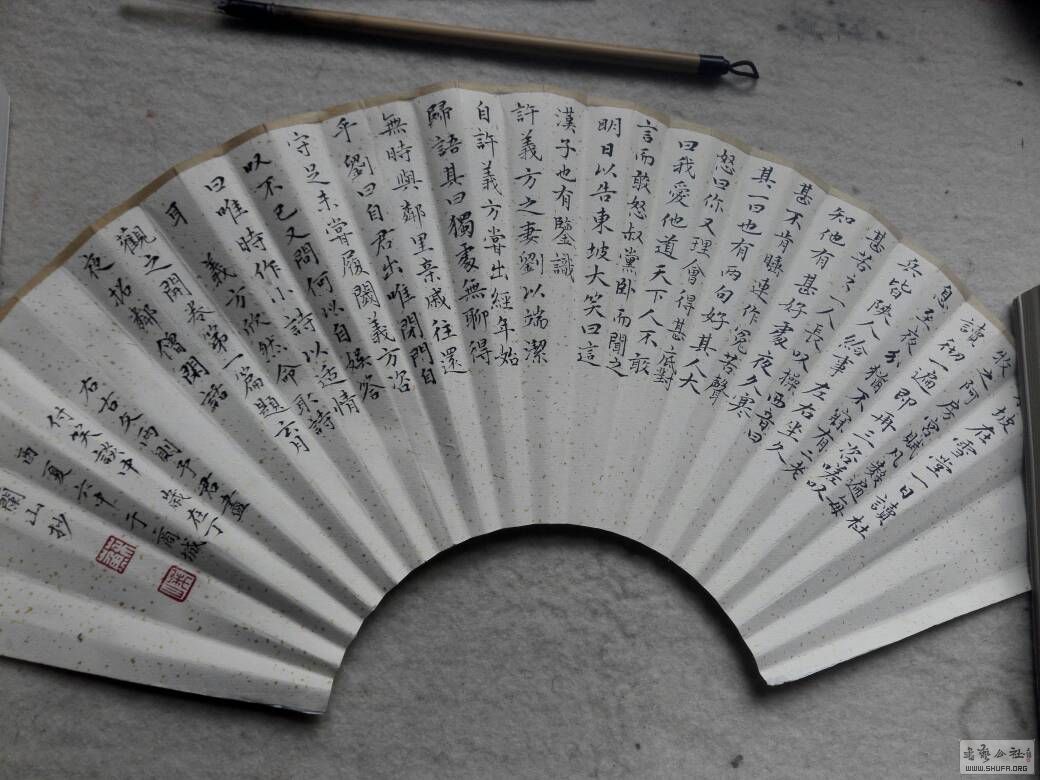 坡在雪堂一日讀杜
牧之阿房宮賦凡數遍每
讀一遍即再三咨嗟叹
息至夜分猶不寐有二老
兵皆陝人給事左右坐久
甚苦之一人長叹操西音曰
知他有甚好處夜久寒
甚不肯睡連作冤苦聲
其一曰也有兩句好其人大
怒曰你又理會得甚底對
曰我愛他道天下人不敢
言而敢怒叔黨臥而聞之
明日以告東坡大笑曰這
漢子也有鑒識
許義方之妻劉以端潔
自許義方嘗出經年始
歸語其曰獨處無聊得
無時與鄰里親戚往還
乎劉曰自君出唯閉門自
守足未嘗履閾義方咨
叹不已又問何以自娛答
曰唯時作小詩以适情
耳義方欣然命取詩
觀之開卷第一篇題云月
夜招鄰僧閑話
右古文兩則予君畫
付笑談中歲在丁
酉夏六年于商城
山抄
WWW.SHUFA.ORG